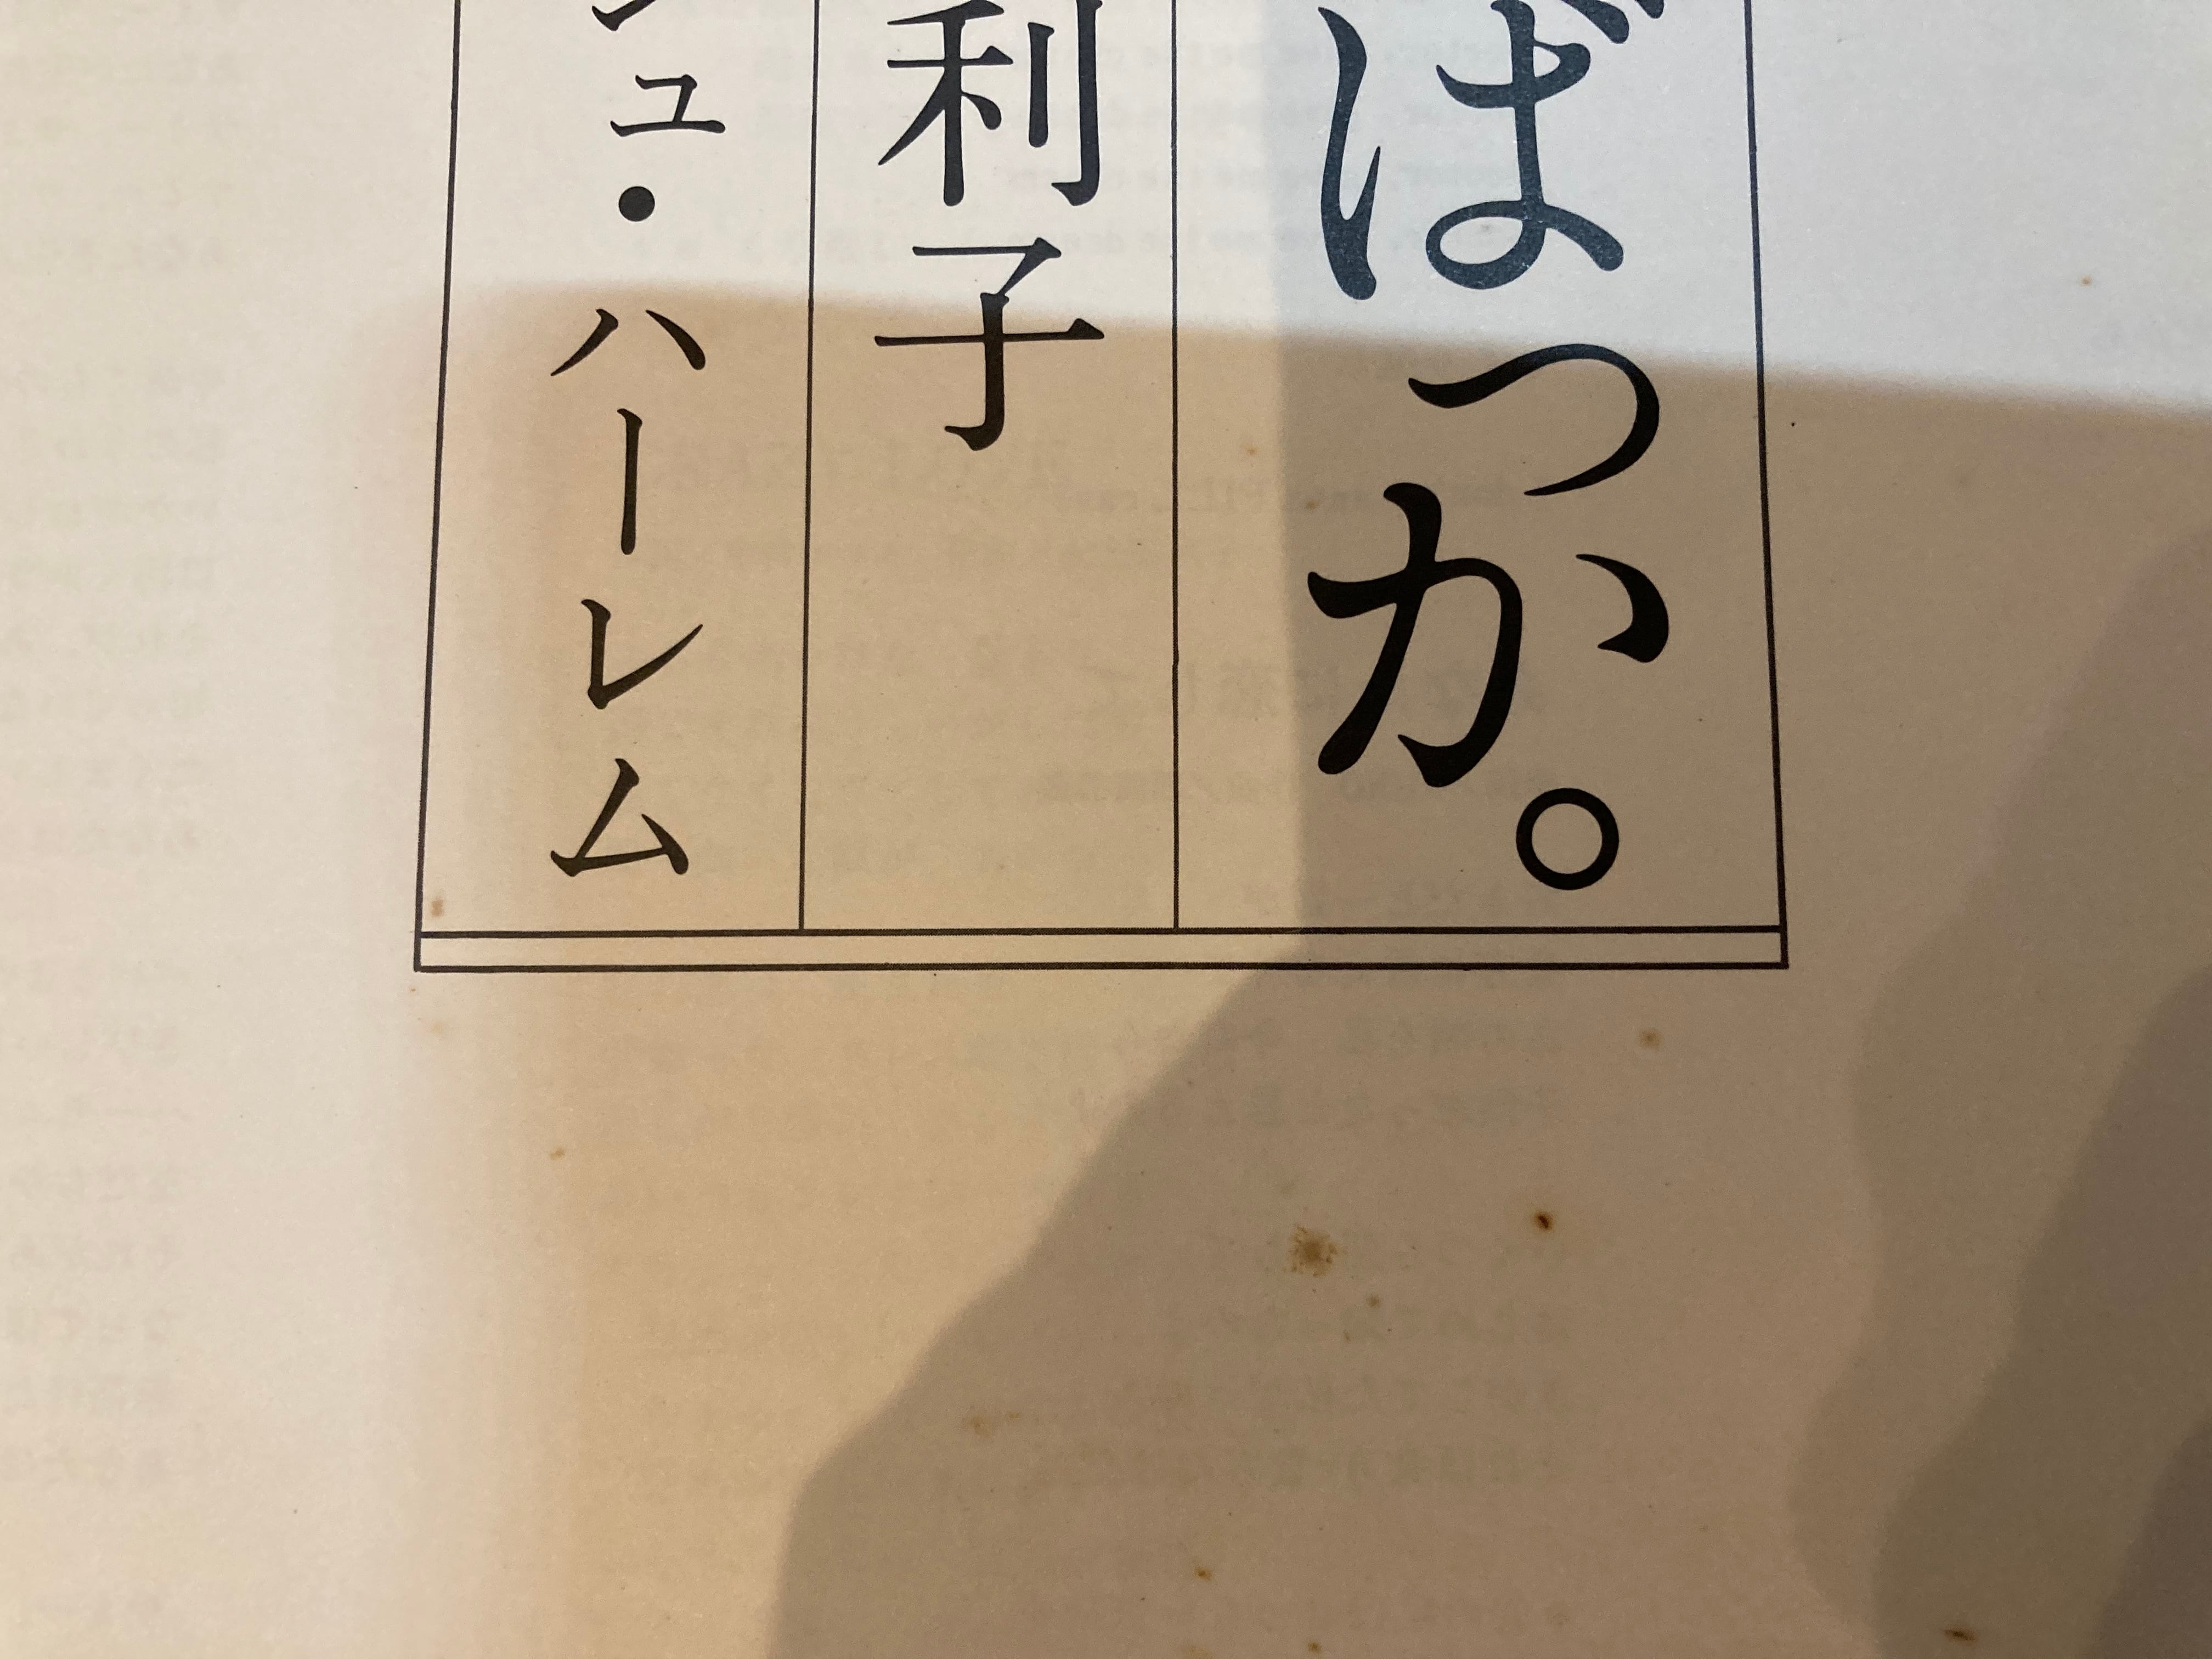 ばっか。
利子
ュ・ハーレム